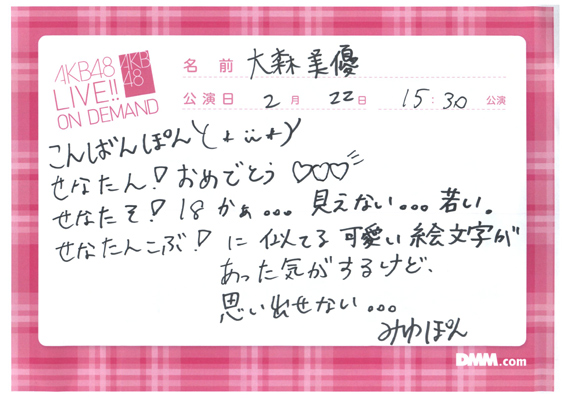 AKB48
LIVE!!
ON DEMAND
AKB
48
名前 大森美優
公演日 2月 22日 15:30 公演
こんばんぽん\(* ü *)/
せなたん!おめでとう ♡♡♡
せなたそ!18かぁ... 見えない...若い。
せなたんこぶ!に似てる可愛い絵文字が
あった気がするけど、
思い出せない...
みゆぽん
DMM.com